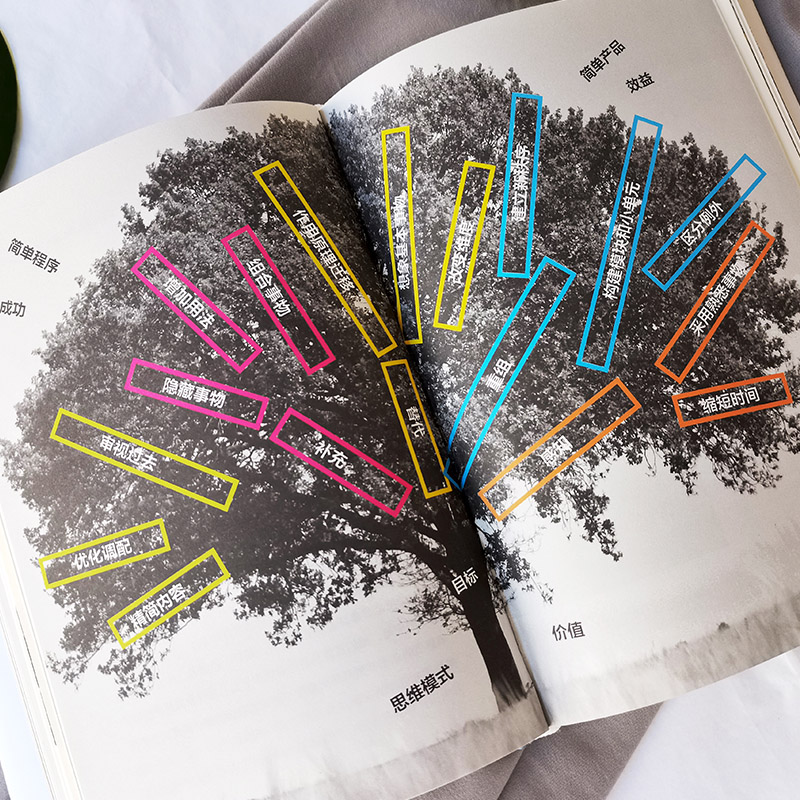 简单程序
成功
增加用法
组合事物
作用原理迁移
隐藏事物
补充
审视过去
优化调配
精简内容
替代
目标
思维模式
想象基本事物
改变维度
建立新秩序
重组
构建模块和小单元
区分例外
采用熟悉事物
缩短时间
感知
简单产品
效益
价值